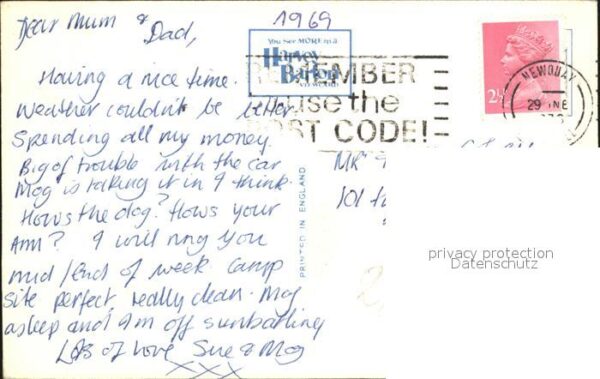 Dear Mum &
Dad,
1969
Having a nice time.
Weather couldn't be better.
Spending all my money.
Big of trouble with the car
Mog is taking it in I think.
Hows the dog? Hows your
Arm? I will ring you
mid/end of week. Camp
site perfect, really clean. Mog
asleep and I'm off sunbathing
Lots of love Sue & Mog
XXX
You See MORE in a
Harvey
Barton
VIEWCARD
REMEMBER
use the
POST CODE!
2½
NEWQUAY
29 JNE
PRINTED IN ENGLAND
MR
101
privacy protection
Datenschutz